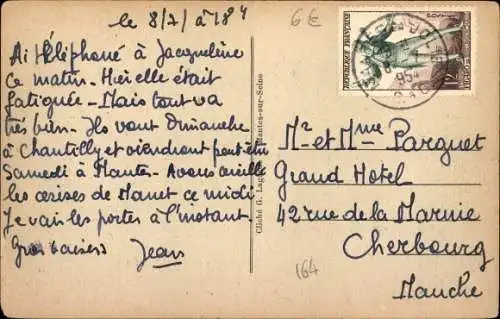 le 8/7/ à 18 H
Ai téléphoné à Jacqueline
ce matin - Hier elle était
fatiguée - Mais tout va
très bien - Ils vont Dimanche
à Chantilly et viendront peut être
Samedi à Mantes - Avons cueilli
les cerises de Manet ce midi
Je vais les porter à l'instant
Gros baisers Jean
6€
REPUBLIQUE FRANÇAISE
12
954
Cliché G. Lag
Mantes-sur-Seine
Mr et Mme Parquet
Grand Hotel
42 rue de la Marine
Cherbourg
Manche
164